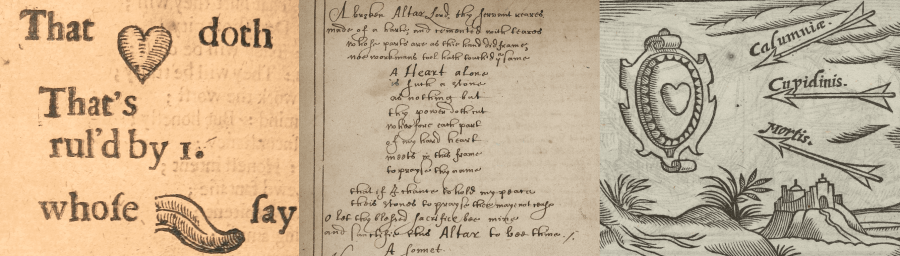 That doth
That's
rul'd by 1.
whoſe ſay
A broken Altar, Lord, thy servant reares
made of a harte; and cemented with teares
whose parts are as thie hand did frame,
noe workmans tool hath touched yͤ same
A Heart alone
is such a stone
as nothing but
thy power doth cut
wherfore each part
of my hard heart
meets in this frame
to prayse thy name
that if I chance to hold my peace
theis stones to prayse thee may not cease
O let thy blessed sacrifice bee mine
and sanctifie this Altar to bee thine./
A sonnet.
Calumniæ.
Cupidinis.
Mortis.